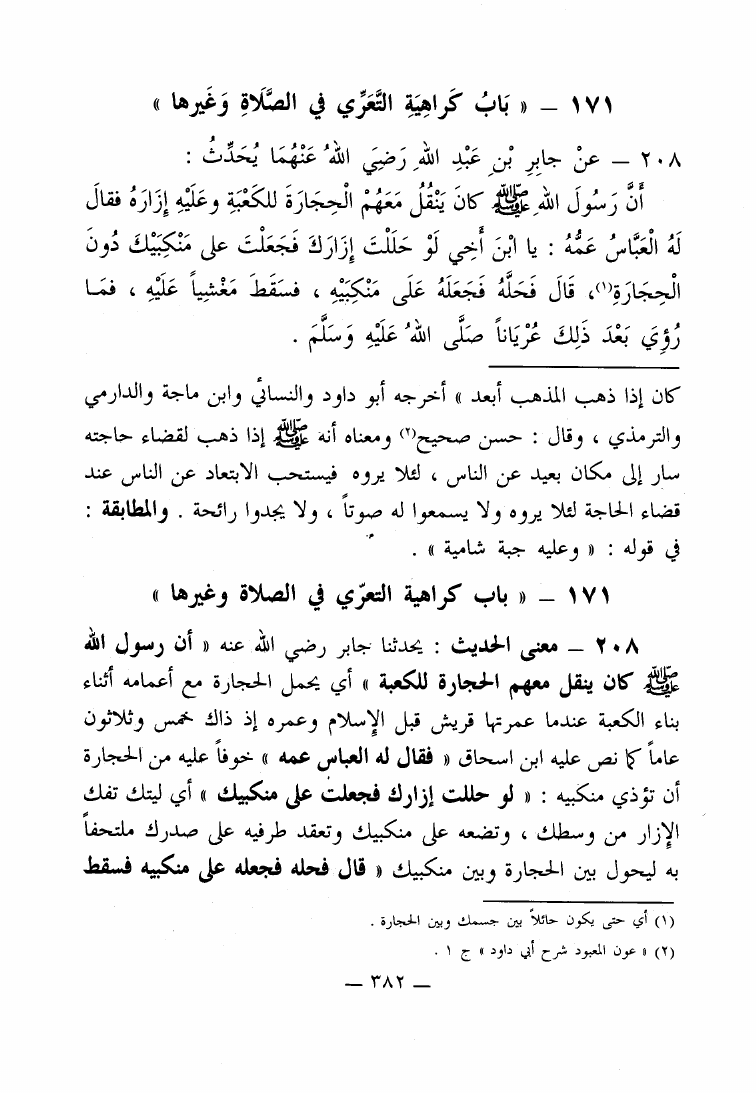 ١٧١ – « بَابُ كَرَاهِيَةِ التَّعَرِّي في الصَّلَاةِ وَغَيرِها »
٢٠٨ – عنْ جابِرِ بْنِ عَبْدِ اللهِ رَضِيَ اللهُ عَنْهُمَا يُحَدِّثُ :
أَنَّ رَسُولَ اللهِ ﷺ كانَ يَنْقُلُ مَعَهُمْ الْحِجَارَةَ للكَعْبَةِ وعَلَيْهِ إِزَارَهُ فقالَ
لَهُ الْعَبَّاسُ عَمُّهُ : يا ابْنَ أَخِي لَوْ حَلَلْتَ إِزَارَكَ فَجَعَلْتَ على مَنْكِبَيْكَ دُونَ
الْحِجَارَةِ(١)، قَالَ فَحَلَّهُ فَجَعَلَهُ عَلَى مَنْكِبَيْهِ ، فسَقَطَ مَغْشِياً عَلَيْهِ ، فمَا
رُؤِيَ بَعْدَ ذَلِكَ عُرْيَاناً صَلَّى اللهُ عَلَيْهِ وَسَلَّمَ .
كان إذا ذهب المذهب أبعد » أخرجه أبو داود والنسائي وابن ماجة والدارمي
والترمذي ، وقال : حسن صحيح(٢) ومعناه أنه ﷺ إذا ذهب لقضاء حاجته
سار إلى مكان بعيد عن الناس ، لئلا يروه فيستحب الابتعاد عن الناس عند
قضاء الحاجة لئلا يروه ولا يسمعوا له صوتاً ، ولا يجدوا رائحة . والمطابقة :
في قوله : « وعليه جبة شامية » .
١٧١ – « باب كراهية التعرّي في الصلاة وغيرها »
٢٠٨ – معنى الحديث : يحدثنا جابر رضي الله عنه « أن رسول الله
ﷺ كان ينقل معهم الحجارة للكعبة » أي يحمل الحجارة مع أعمامه أثناء
بناء الكعبة عندما عمرتها قريش قبل الإسلام وعمره إذ ذاك خمس وثلاثون
عاماً كما نص عليه ابن اسحاق « فقال له العباس عمه » خوفاً عليه من الحجارة
أن تؤذي منكبيه : « لو حللت إزارك فجعلت على منكبيك » أي ليتك تفك
الإزار من وسطك ، وتضعه على منكبيك وتعقد طرفيه على صدرك ملتحفاً
به ليحول بين الحجارة وبين منكبيك « قال فحله فجعله على منكبيه فسقط
(١) أي حتى يكون حائلاً بين جسمك وبين الحجارة .
(٢) « عون المعبود شرح أبي داود » ج ١ .
– ٣٨٢ –